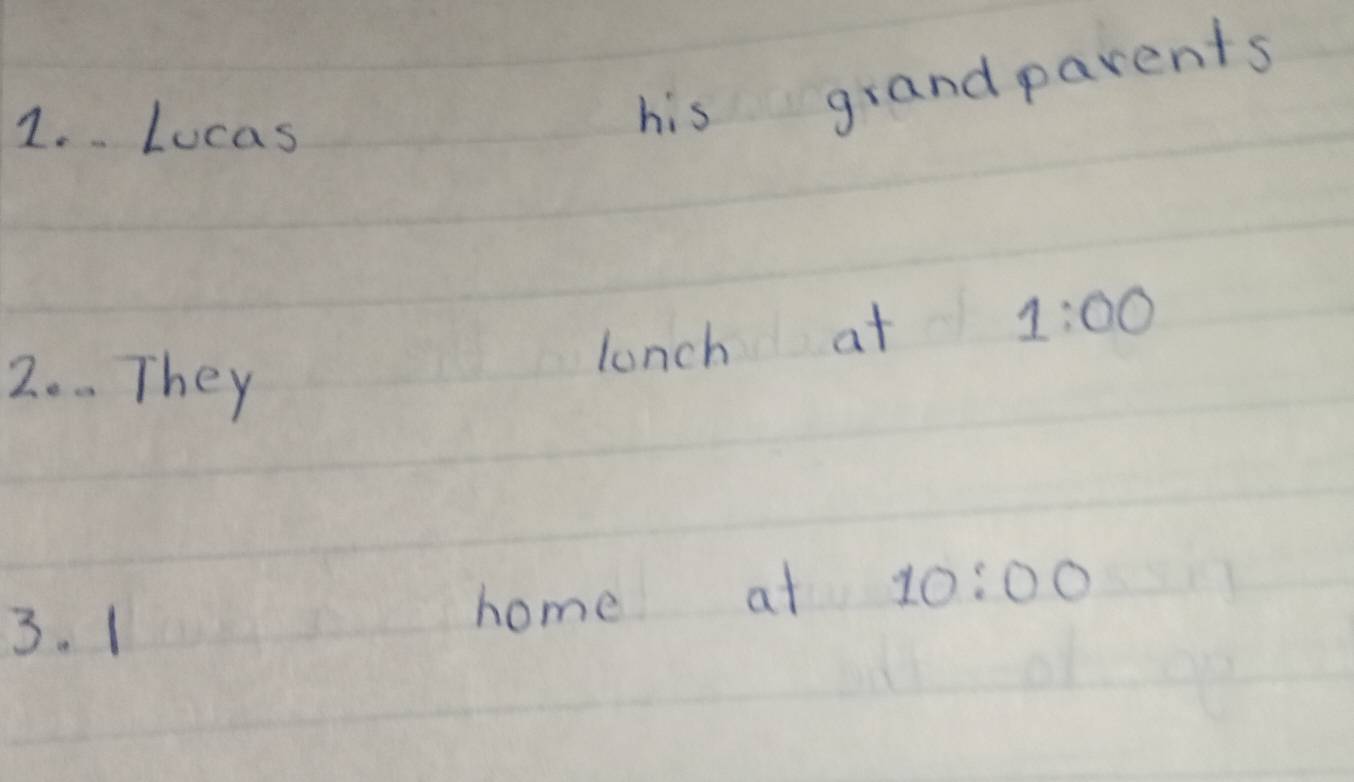 1.. Lucas his grandparents
2... They lunch at 1:00
3. I home at 10:00